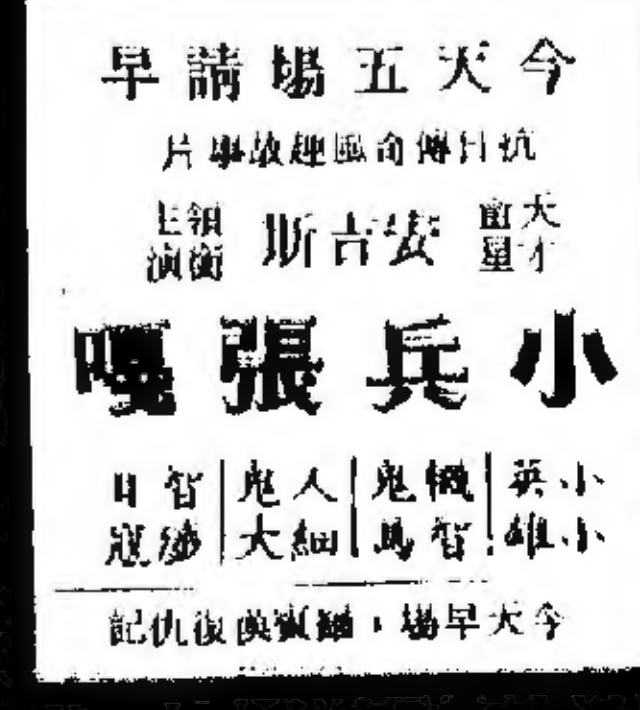 今天五場請早
抗日傳奇風趣故事片
天才童星
安吉斯
領銜主演
小兵張嘎
小小英雄
機智鬼馬
人細鬼大
智殲日寇
今天早場：復仇記